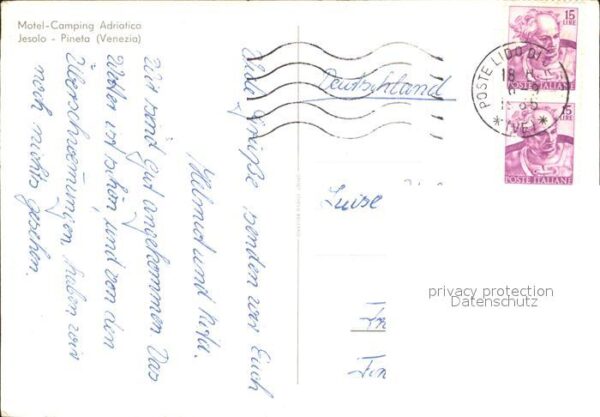 Motel-Camping Adriatica
Jesolo - Pineta (Venezia)
Viele Grüße senden wir Euch
Helmut und
Wir sind gut angekommen. Das
Wetter ist schön, und von den
Überschwemmungen haben wir
noch nichts gesehen.
Deutschland
Luise
15
LIRE
POSTE ITALIANE
15
LIRE
POSTE ITALIANE
POSTE LIDO DI
18
(VE)
privacy protection
Datenschutz